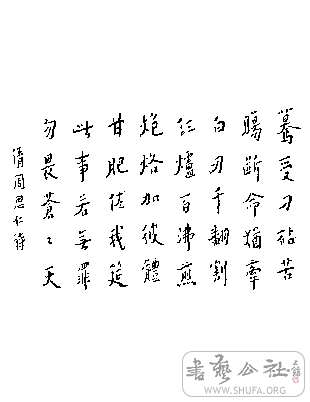 驀受刀砧苦
腸斷命猶牽
白刃千翻割
紅爐百沸煎
炮烙加彼體
甘肥佐我筵
此事若無罪
勿畏蒼々天
清周思仁詩
書藝公社
WWW.SHUFA.ORG